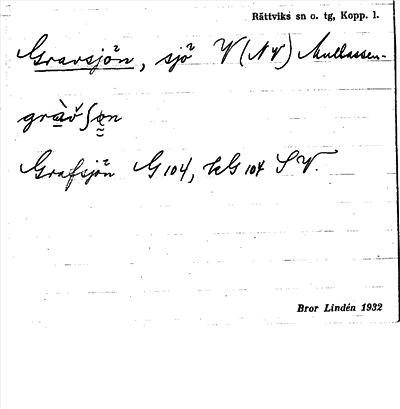 Rättviks sn o. tg, Kopp. l.
Gravsjön, sjö V (NV) Mullassen-
gràv̌ʃo̰n
Grafsjön G 104, LG 104 SV.
Bror Lindén 1932